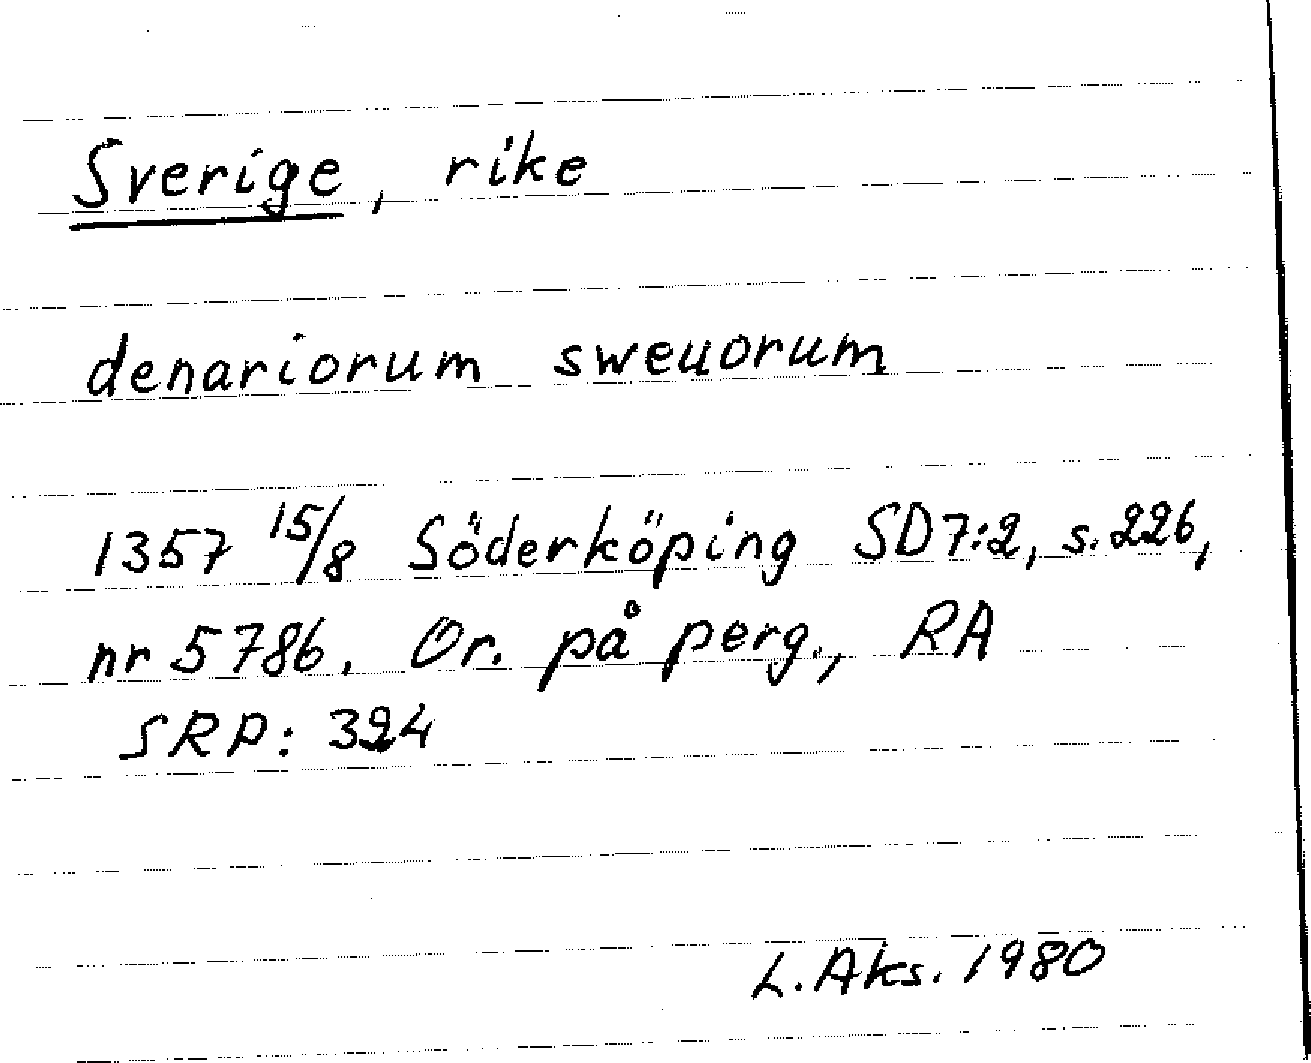 Sverige, rike
denariorum sweuorum
1357 15/8 Söderköping SD7:2, s. 226,
nr 5786. Or. på perg., RA
SRP: 324
L. Aks. 1980